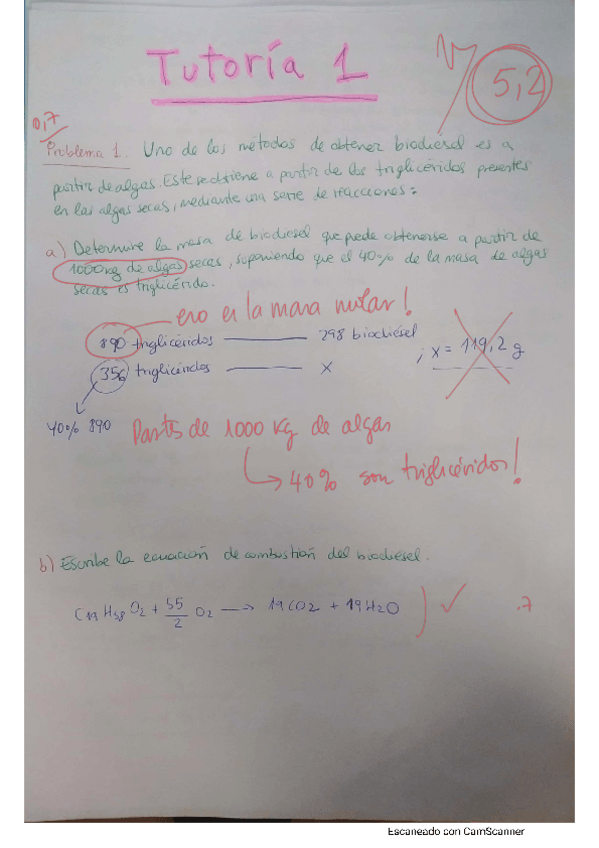 Tutoría 1
5,2
0,7
Problema 1. Uno de los métodos de obtener biodiésel es a
partir de algas. Este se obtiene a partir de los triglicéridos presentes
en las algas secas, mediante una serie de reacciones:
a) Determine la masa de biodiesel que puede obtenerse a partir de
1000kg de algas secas, suponiendo que el 40% de la masa de algas
secas es triglicérido.
ero es la masa molar!
890 triglicéridos 298 biodiésel
; x = 119,2 g
356 triglicéridos x
40% 890
Partes de 1000 kg de algas
40% son triglicéridos!
b) Escribe la ecuación de combustión del biodiesel.
C19 H38 O2 + 55/2 O2 → 19 CO2 + 19 H2O
.7
Escaneado con CamScanner